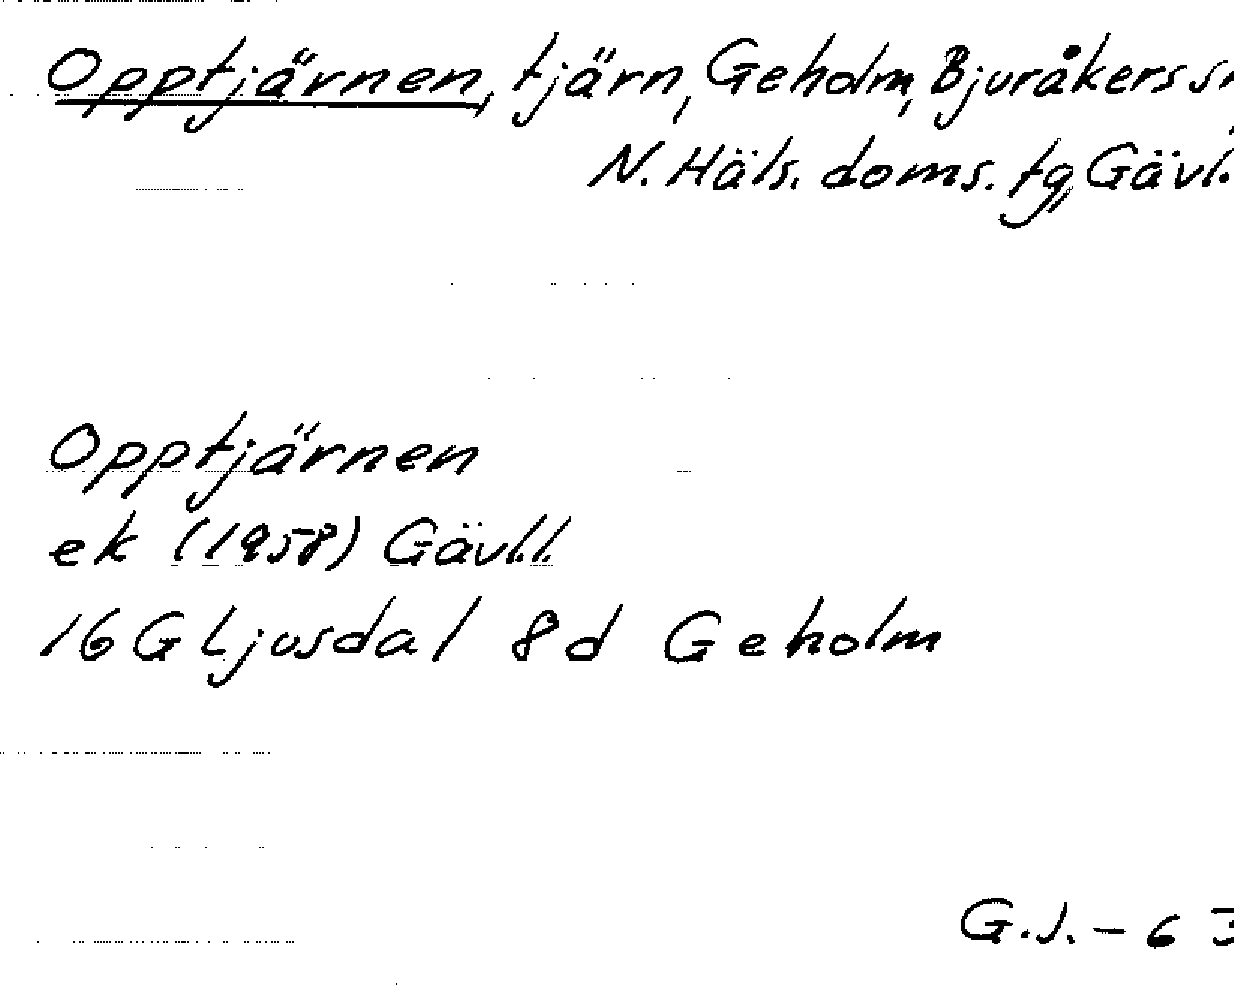 Opptjärnen, tjärn, Geholm, Bjuråkers sn,
N. Häls. doms. tg, Gävl.
Opptjärnen
ek (1958) Gävl.l.
16G Ljusdal 8d Geholm
G.J. - 63